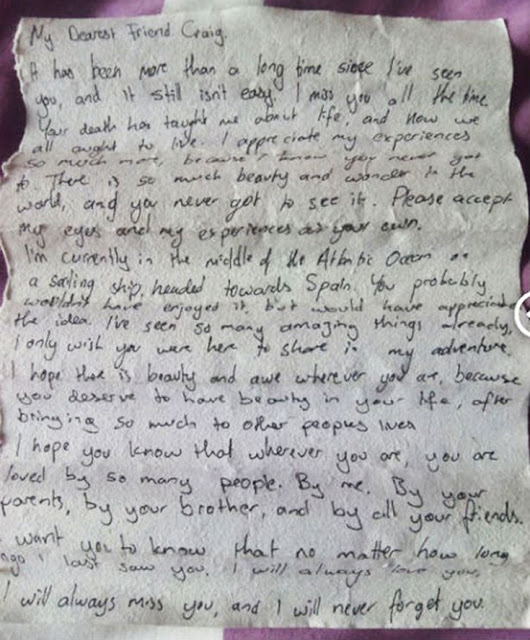 My Dearest Friend Craig.
It has been more than a long time since I've seen
you, and it still isn't easy. I miss you all the time.
Your death has taught me about life, and how we
all ought to live. I appreciate my experiences
so much more, because I know you never got
to. There is so much beauty and wonder in the
world, and you never got to see it. Please accept
my eyes and my experiences as your own.
I'm currently in the middle of the Atlantic Ocean on
a sailing ship, headed towards Spain. You probably
wouldn't have enjoyed it, but would have appreciated
the idea. I've seen so many amazing things already,
I only wish you were here to share in my adventure.
I hope there is beauty and awe wherever you are, because
you deserve to have beauty in your life, after
bringing so much to other peoples lives
I hope you know that wherever you are, you are
loved by so many people. By me. By your
parents, by your brother, and by all your friends.
want you to know that no matter how long
ago I last saw you. I will always love you,
I will always miss you, and I will never forget you.